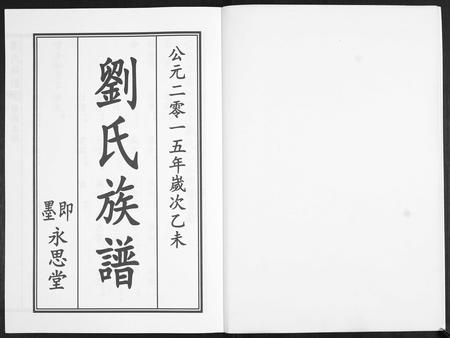 公元二零一五年歲次乙未
劉氏族譜
即墨
永思堂